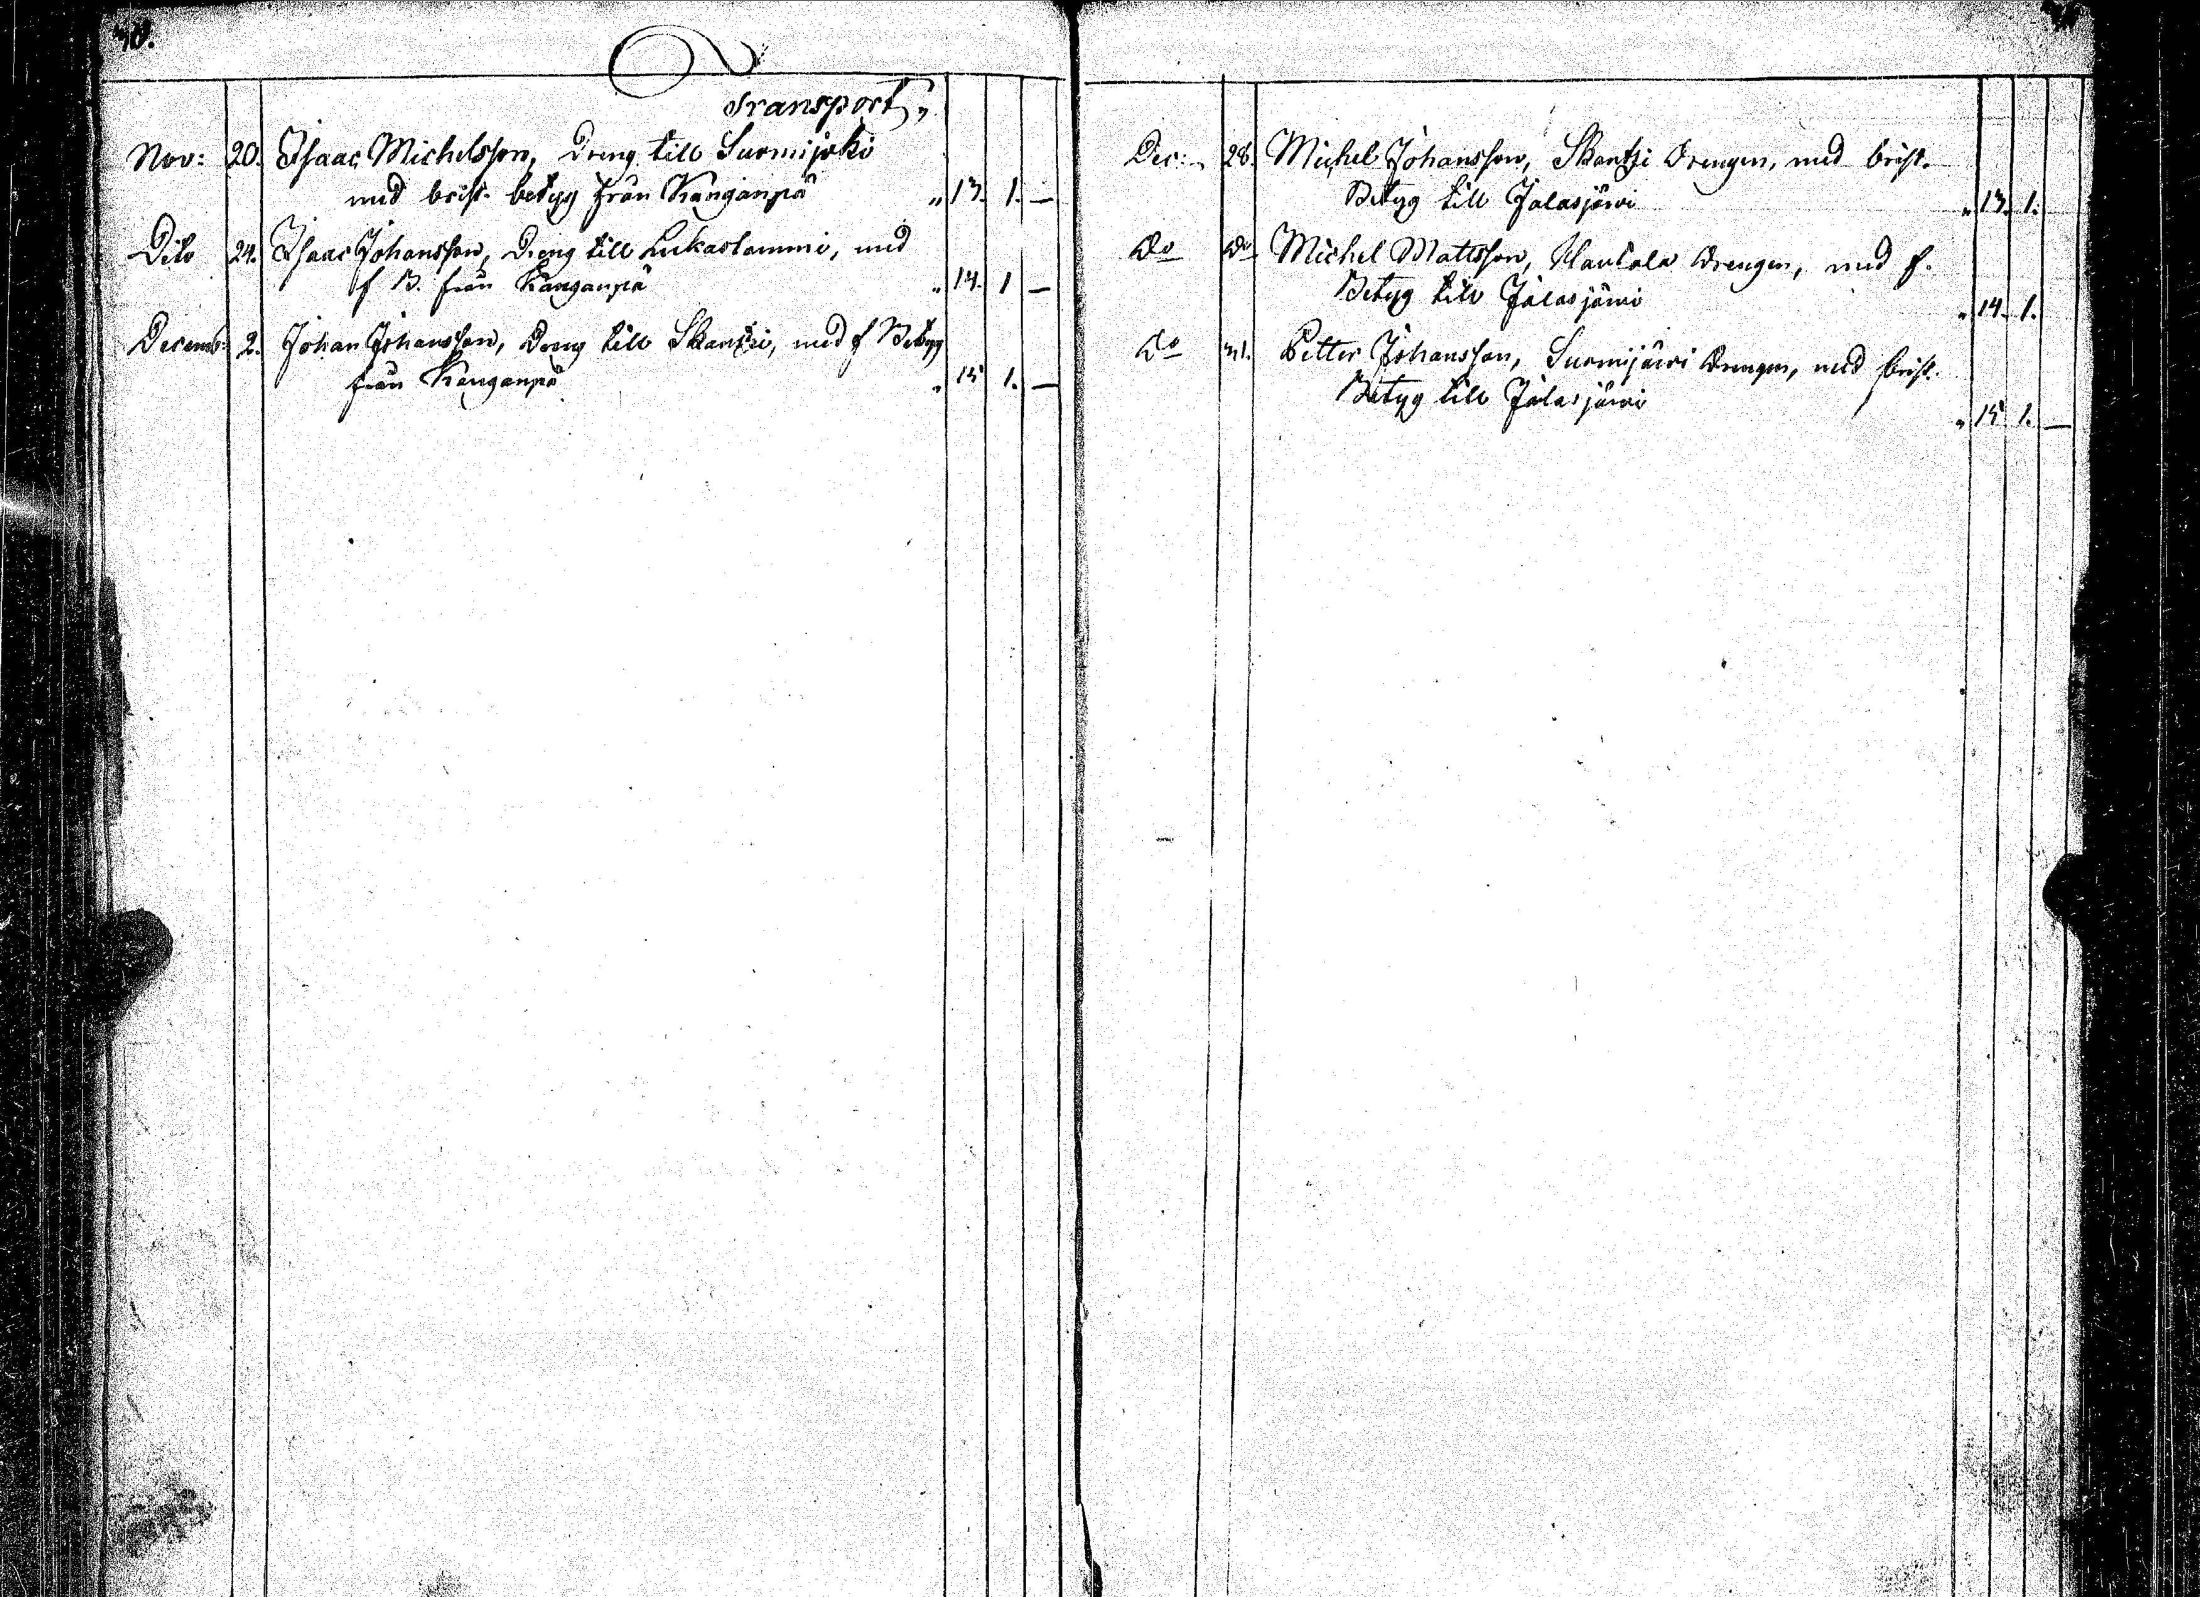 30.
Transport „
Nov: 20. Isaac Michelsson, Dreng till Suomijoki
med frist. betyg från Kanganpä „ 13. 1. —
Dito 24. Isaac Johansson, Dreng till Lukaslammi, med
f B. från Kanganpä „ 14. 1 —
Decemb: 2. Johan Johansson, Dreng till Skantzi, med f Betyg
från Kanganpä „ 15 1. —
Dec: 28. Michel Johansson, Skantzi Drengen, med frist.
Betyg till Jalasjärvi „ 13. 1.
Do Do Michel Mattsson, Hautala Drengen, med f.
Betyg till Jalasjärvi „ 14. 1.
Do 31. Petter Johansson, Suomijärvi Drengen, med frist.
Betyg till Jalasjärvi „ 15 1. —